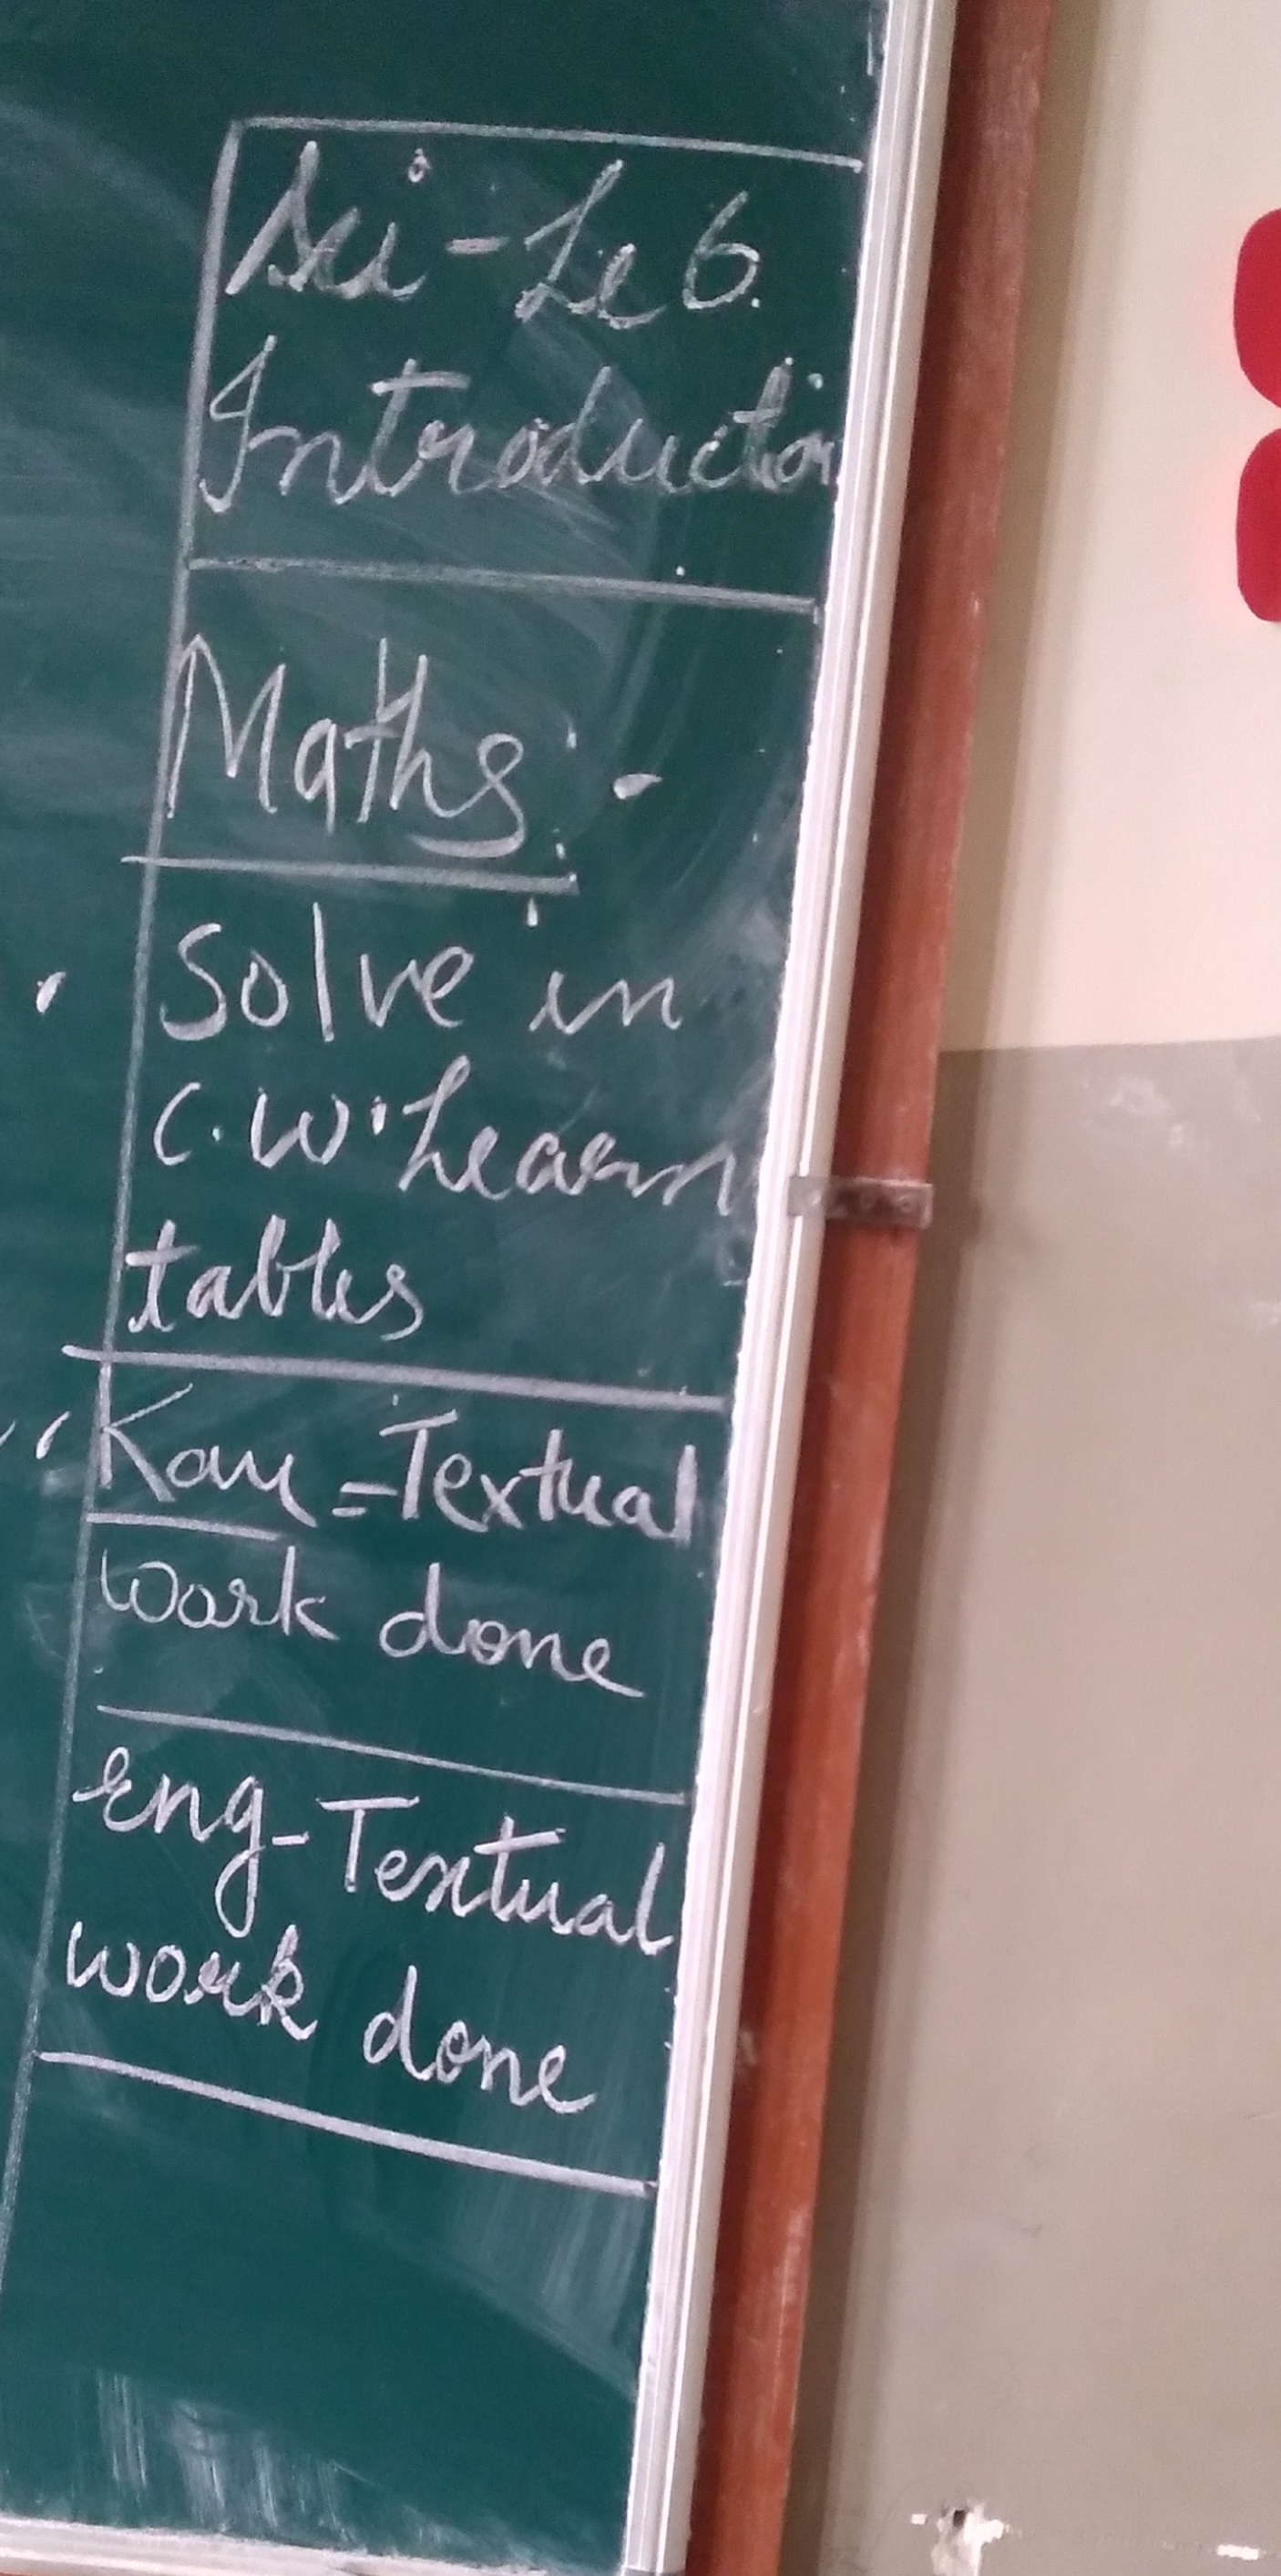 Sci - Le 6.
Introduction
Maths:-
Solve in
C.W. Learn
tables
Kan = Textual
work done
eng - Textual
work done